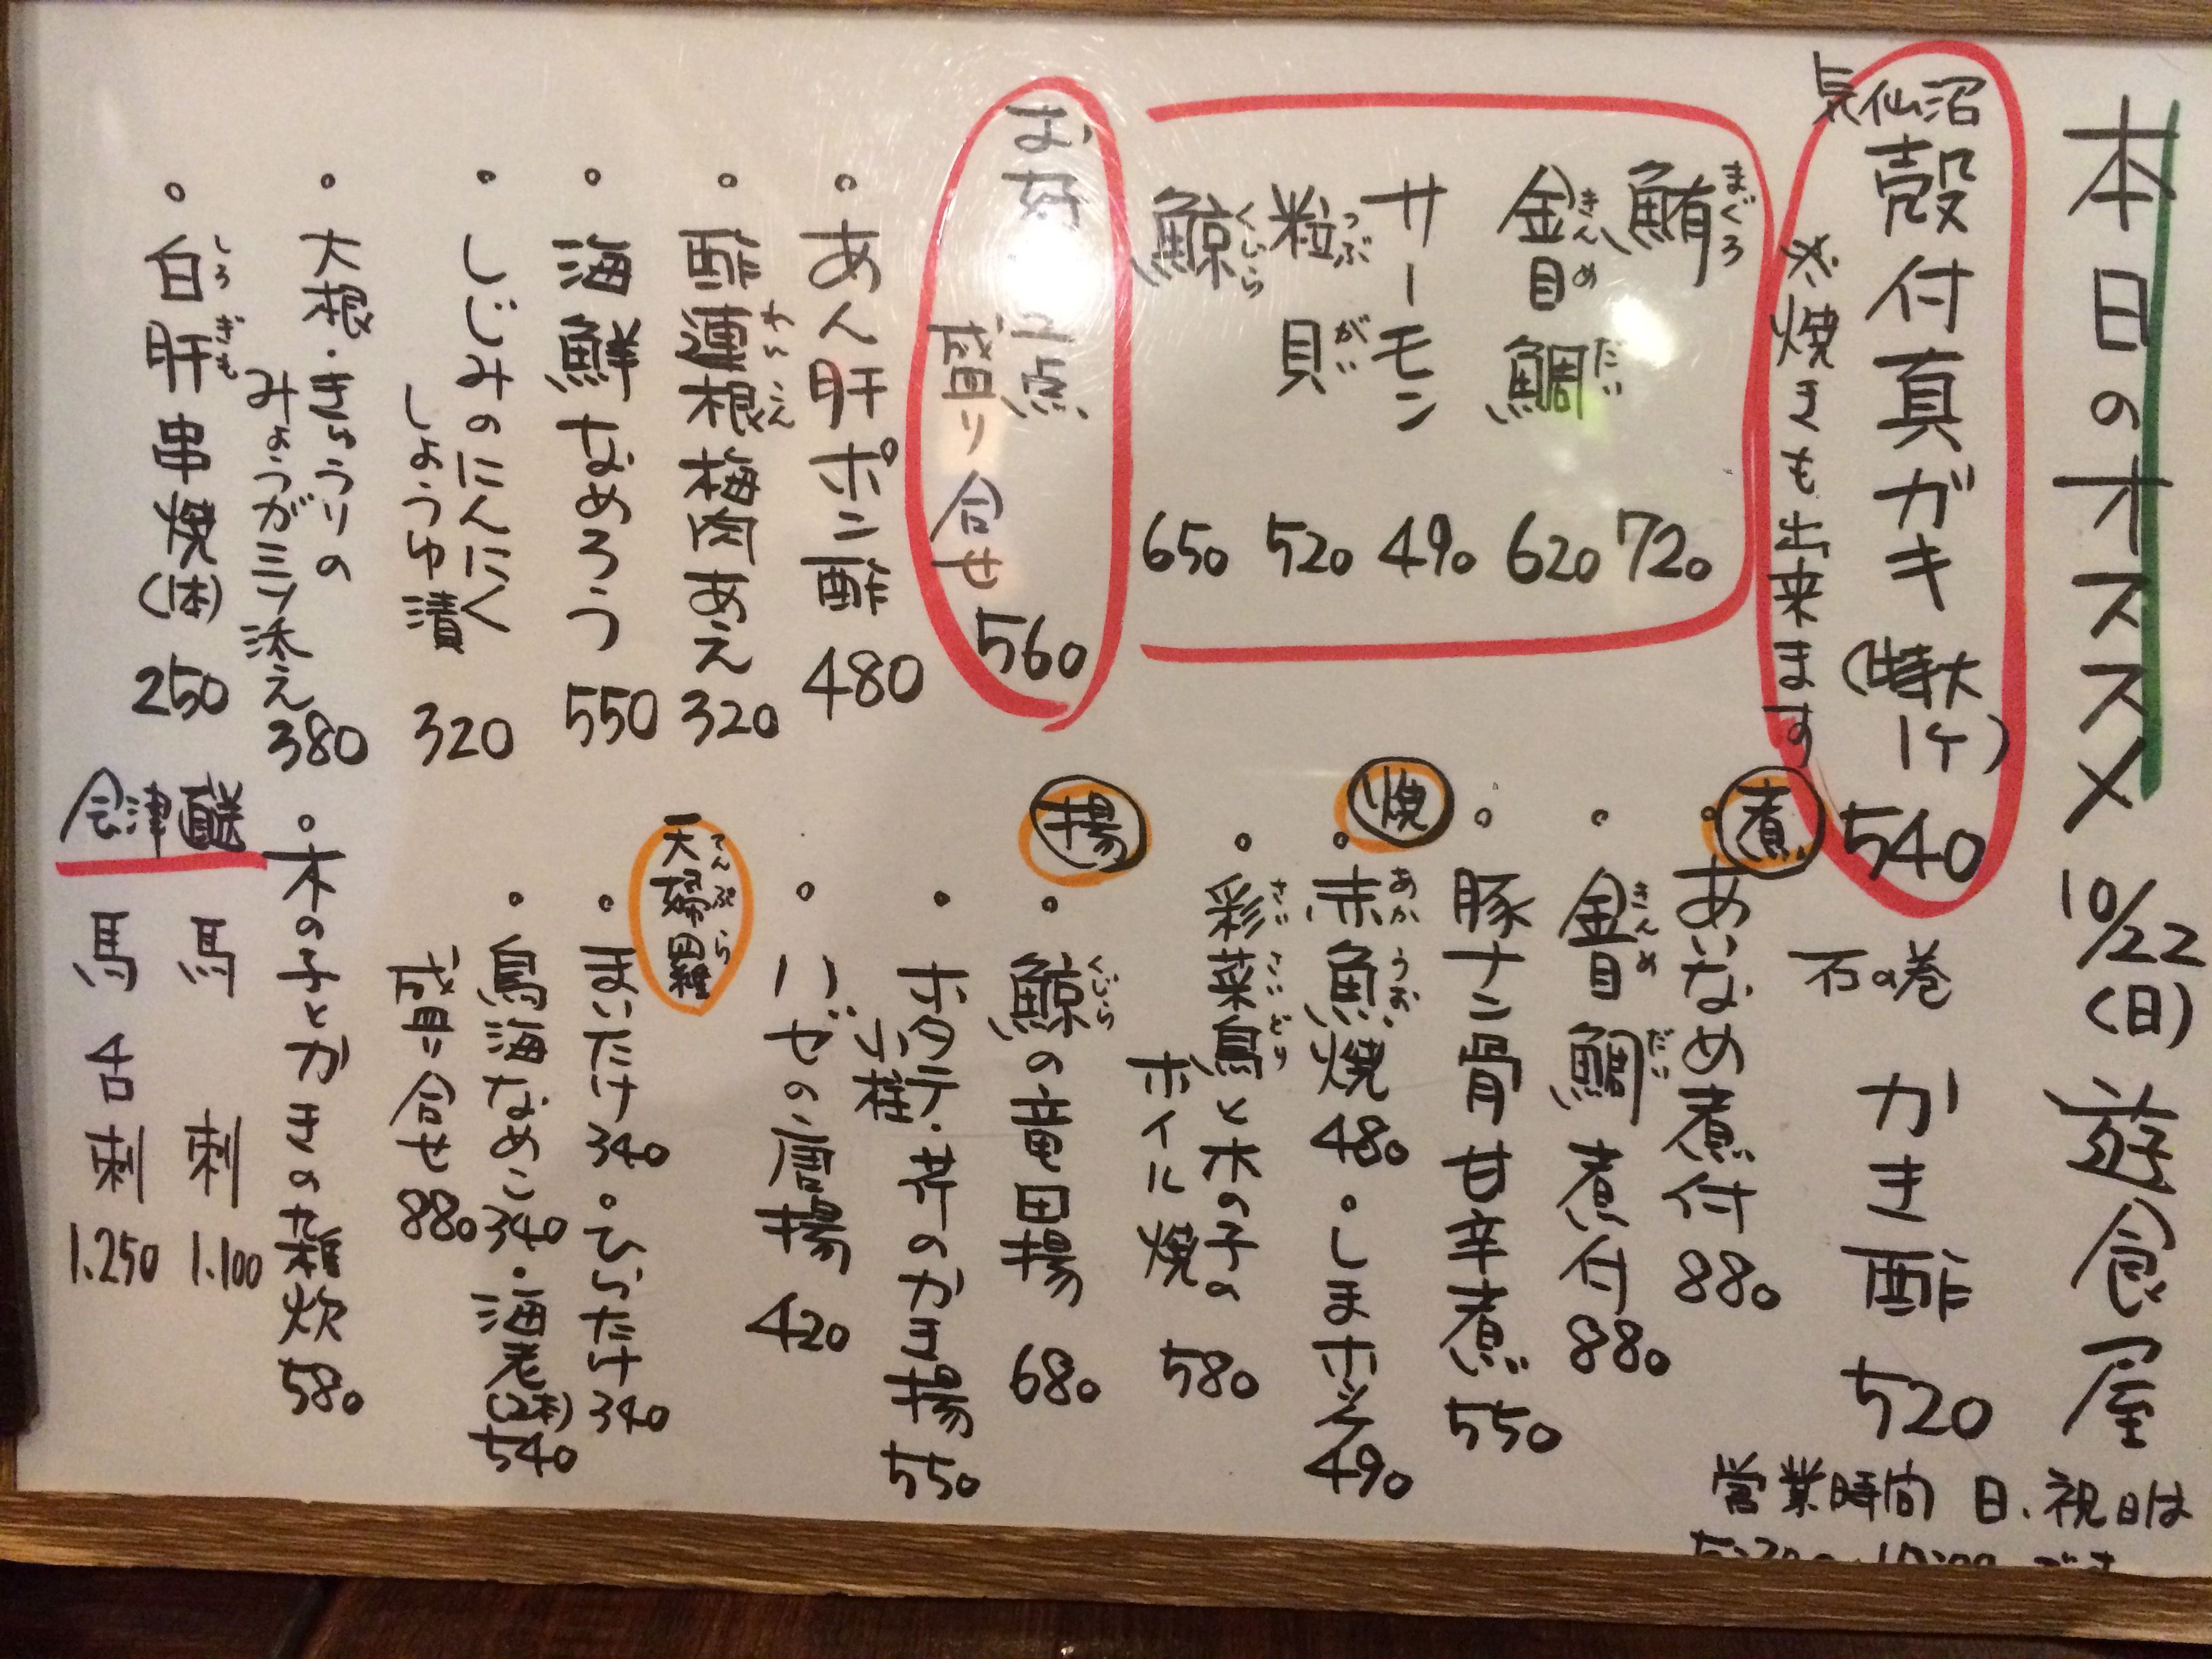 本日のオススメ 10/22(日) 遊食屋
気仙沼 殻付真ガキ(特大1ケ) 540
※焼きも出来ます
石の巻 かき酢 520
営業時間 日、祝日は
鮪 まぐろ 720
金目鯛 きんめだい 620
サーモン 490
粒貝 つぶがい 520
鯨 くじら 650
盛り合せ 560
。あん肝ポン酢 480
。酢蓮根梅肉あえ 320
。海鮮なめろう 550
。しじみのにんにく
しょうゆ漬 320
。大根・きゅうりの
みょうがミソ添え 380
。白肝串焼(1本) しろぎも 250
煮
。あいなめ煮付 880
。金目鯛煮付 きんめだい 880
。豚ナンコツ甘辛煮 550
焼
。赤魚焼 あかうお 480 。しまホッケ 490
。彩菜鳥と木の子の さいさいどり
ホイル焼 580
揚
。鯨の竜田揚 くじら 680
。ホタテ小柱・芹のかき揚 550
。ハゼの唐揚 420
天婦羅 てんぷら
。まいたけ 340 。ひらたけ 340
。鳥海なめこ 340 ・海老(2本) 540
盛り合せ 880
。木の子とかきの雑炊 580
会津直送
馬刺 1.100
馬舌刺 1.250